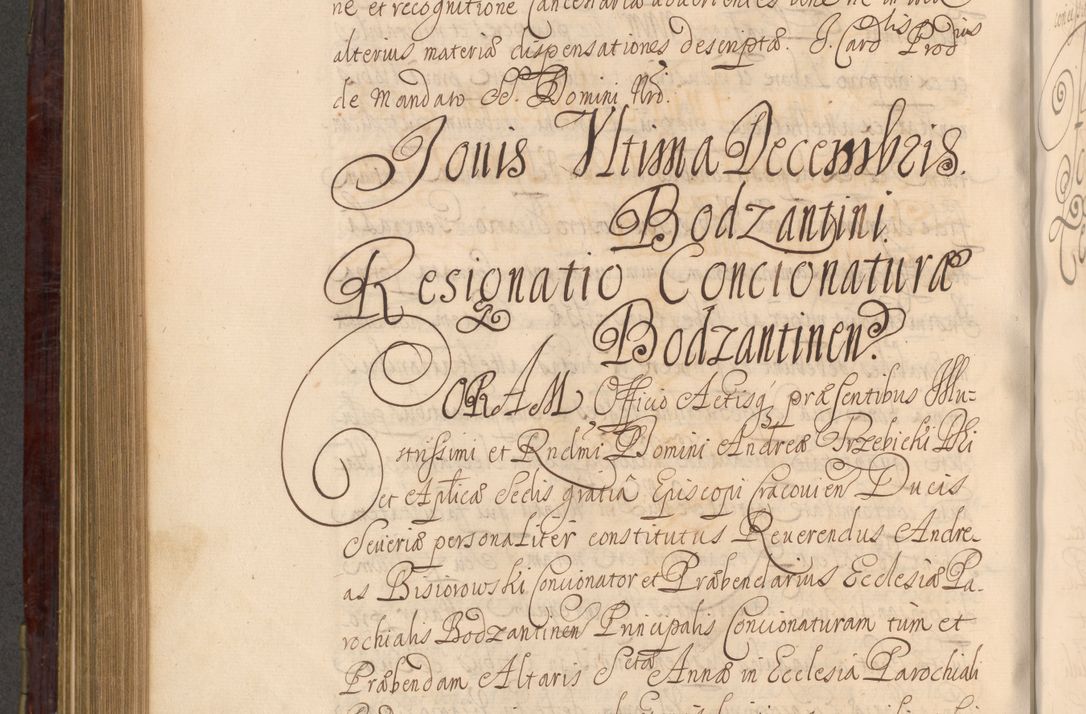 ne et recognitione Cancellariæ
alterius materiæ dispensationes descriptæ. J. Card lis Prod ius
de Mandato SS. Domini Nrd.
Jouis Vltima Decembris.
Bodzantini.
Resignatio Concionaturæ
Bodzantinen.
CORAM Officio Actisq præsentibus Illu-
strissimi et Rndmi Domini Andreæ Trzebicki Dei
et Aplicæ Sedis gratiâ Episcopi Cracouien Ducis
Seueriæ personaliter constitutus Reuerendus Andre-
as Bisiorowski Concionator et Præbendarius Ecclesiæ Pa-
rochialis Bodzantinen Principalis Concionaturam tùm et
Præbendam Altaris Sctæ Annæ in Ecclesiâ Parochiali